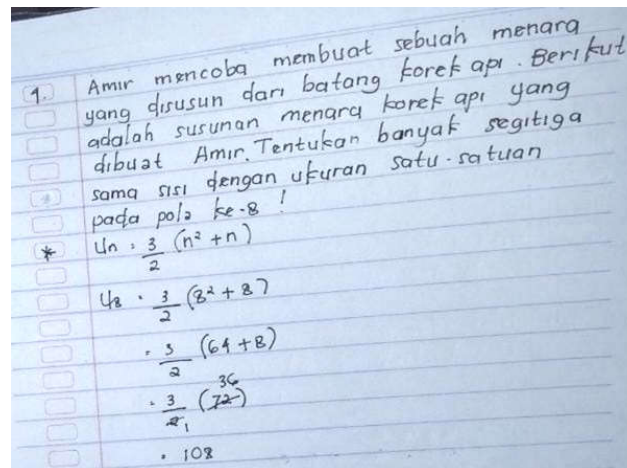 1. Amir mencoba membuat sebuah menara
yang disusun dari batang korek api. Berikut
adalah susunan menara korek api yang
dibuat Amir. Tentukan banyak segitiga
sama sisi dengan ukuran satu-satuan
pada pola ke-8 !
* Un = 3/2 (n² + n)
U8 = 3/2 (8² + 8)
= 3/2 (64 + 8)
36
= 3/2 (72)
1
= 108